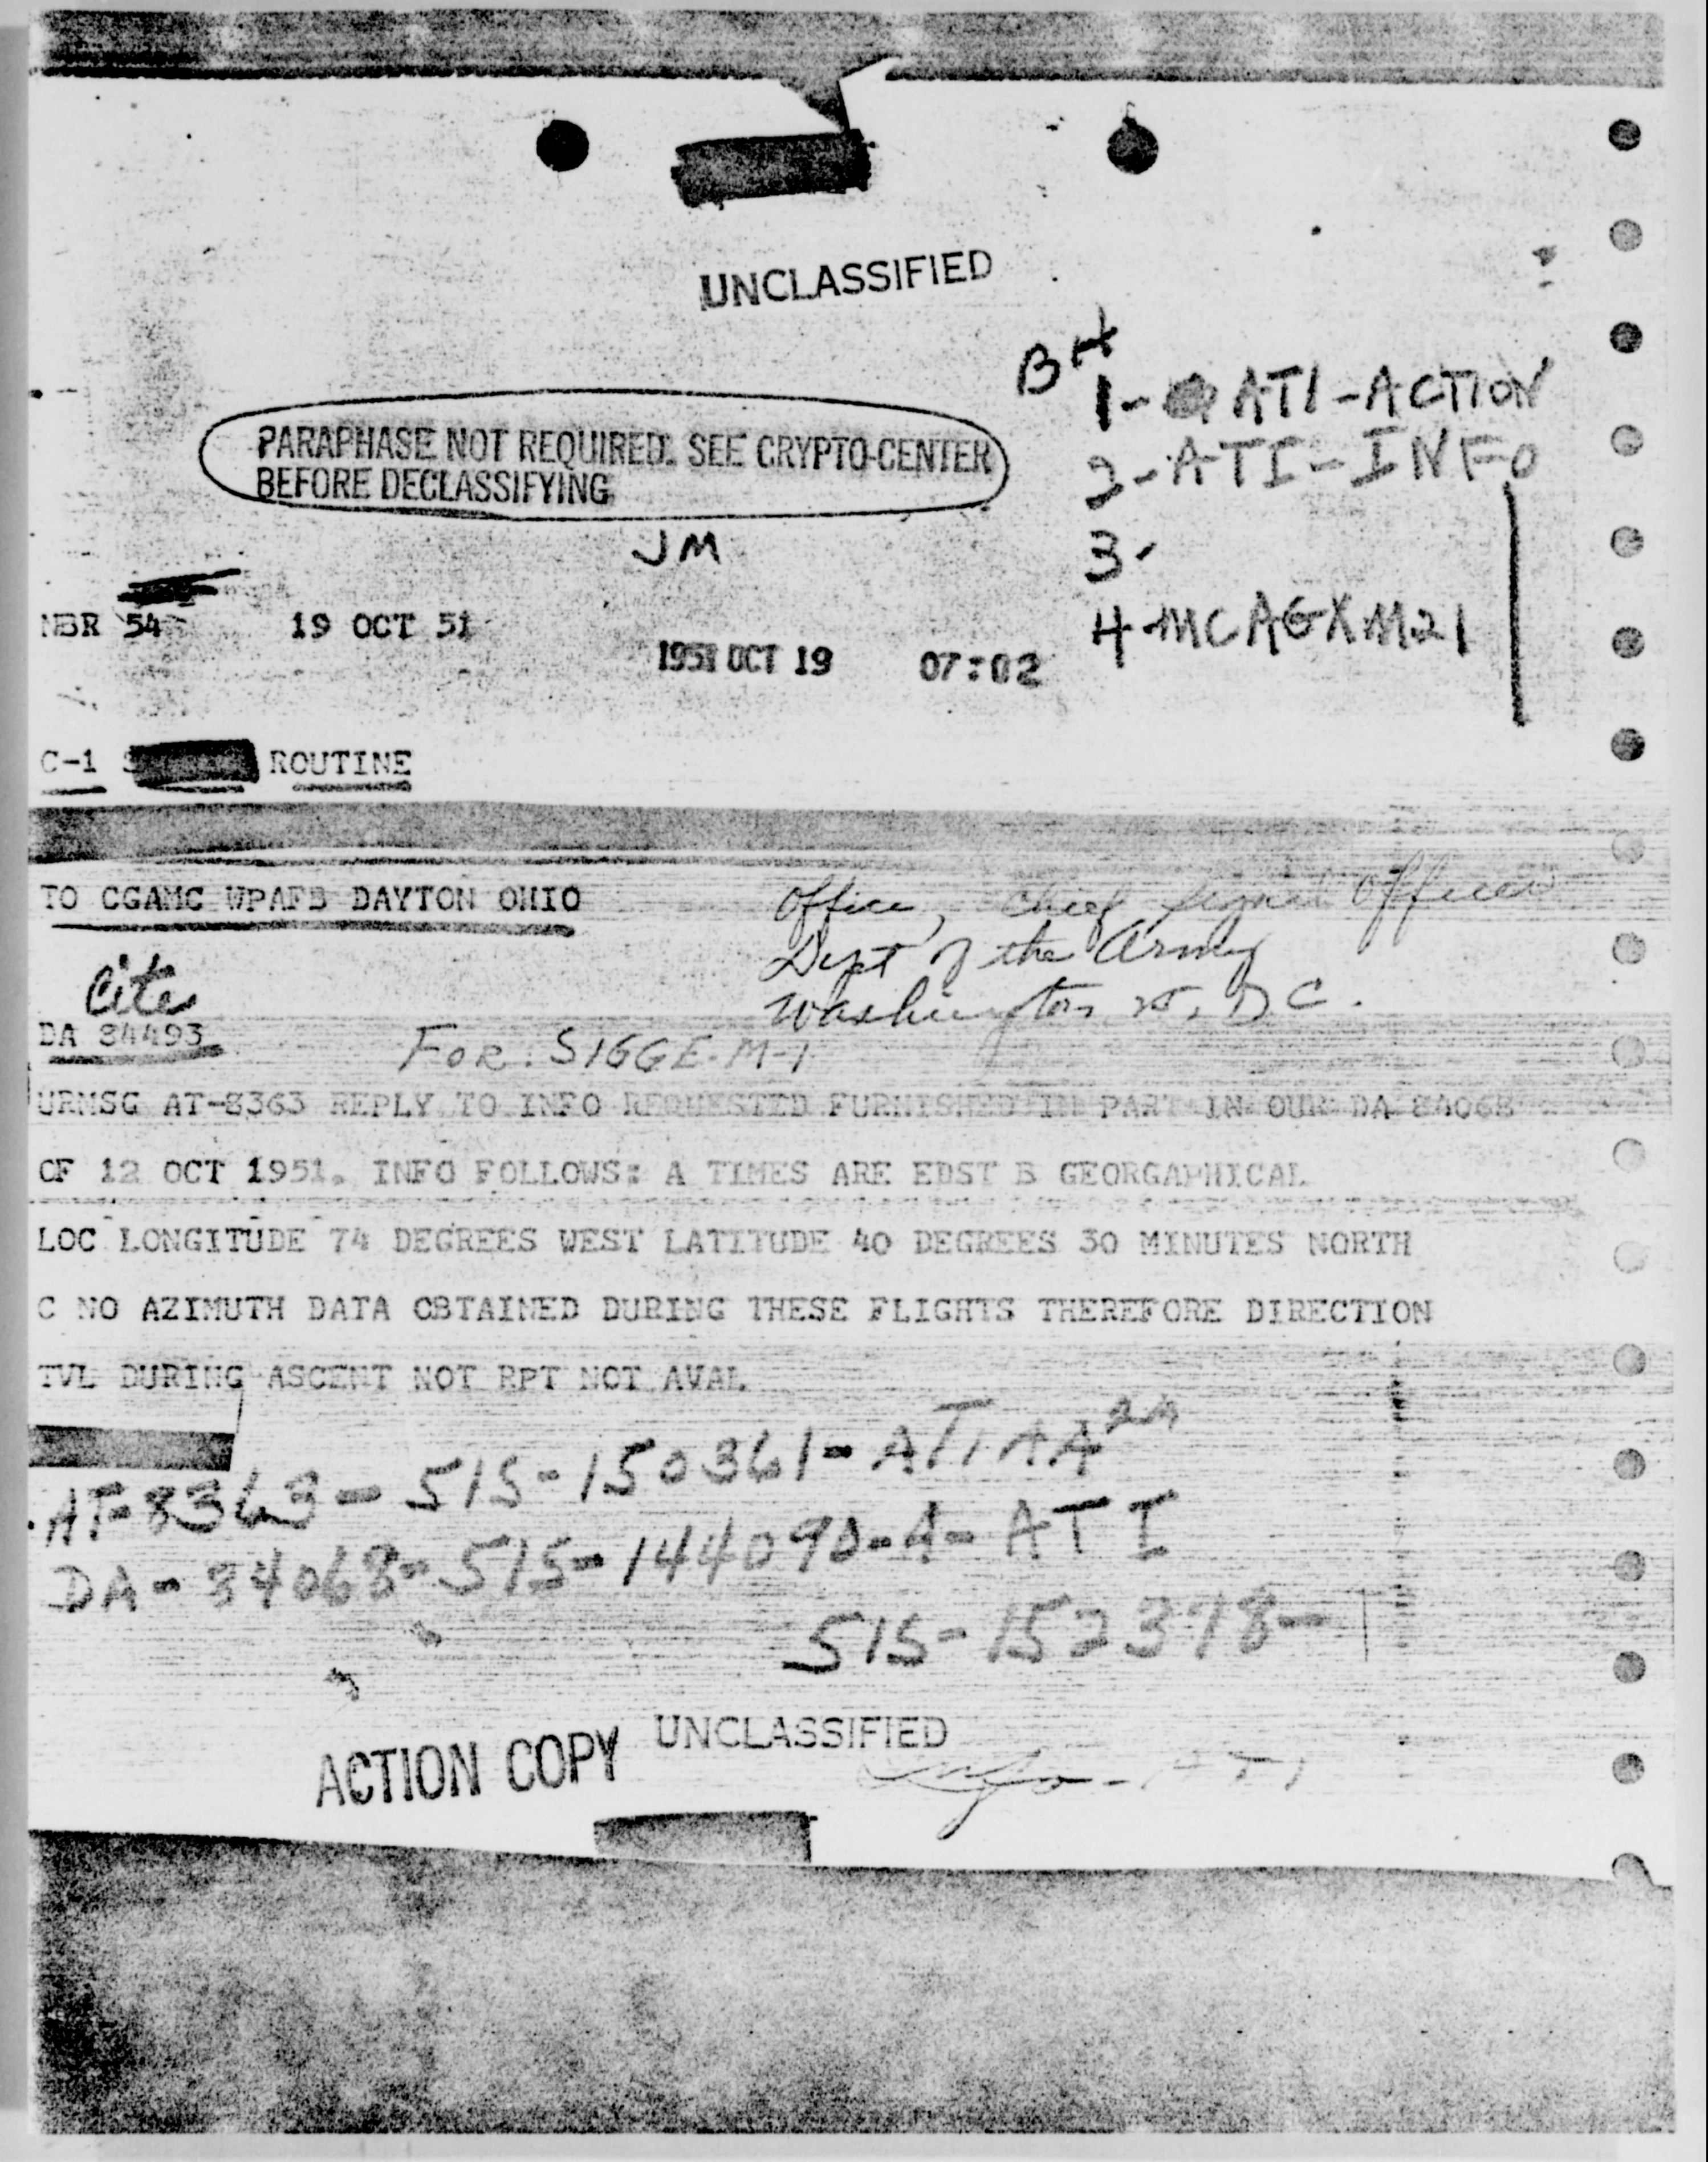 UNCLASSIFIED
BH
1- ATI-ACTION
2-ATI-INFO
3-
4-MCAGXM21
PARAPHASE NOT REQUIRED. SEE CRYPTO-CENTER
BEFORE DECLASSIFYING
JM
NBR 54 19 OCT 51
1951 OCT 19 07:02
C-1 S ROUTINE
TO CGAMC WPAFB DAYTON OHIO
Office, Chief Signal Officer
Dept of the Army
Washington 25, DC.
Cite
DA 84493
FOR: SIGGE-M-1
URMSG AT-8363 REPLY TO INFO REQUESTED FURNISHED IN PART IN OUR DA 84068
OF 12 OCT 1951. INFO FOLLOWS: A TIMES ARE EDST B GEORGAPHICAL
LOC LONGITUDE 74 DEGREES WEST LATITUDE 40 DEGREES 30 MINUTES NORTH
C NO AZIMUTH DATA OBTAINED DURING THESE FLIGHTS THEREFORE DIRECTION
TVL DURING ASCENT NOT RPT NOT AVAL
AT-8363-515-150361-ATIAA2A
DA-84068-515-144090-A-ATI
515-152378-
ACTION COPY UNCLASSIFIED
Info-ATI